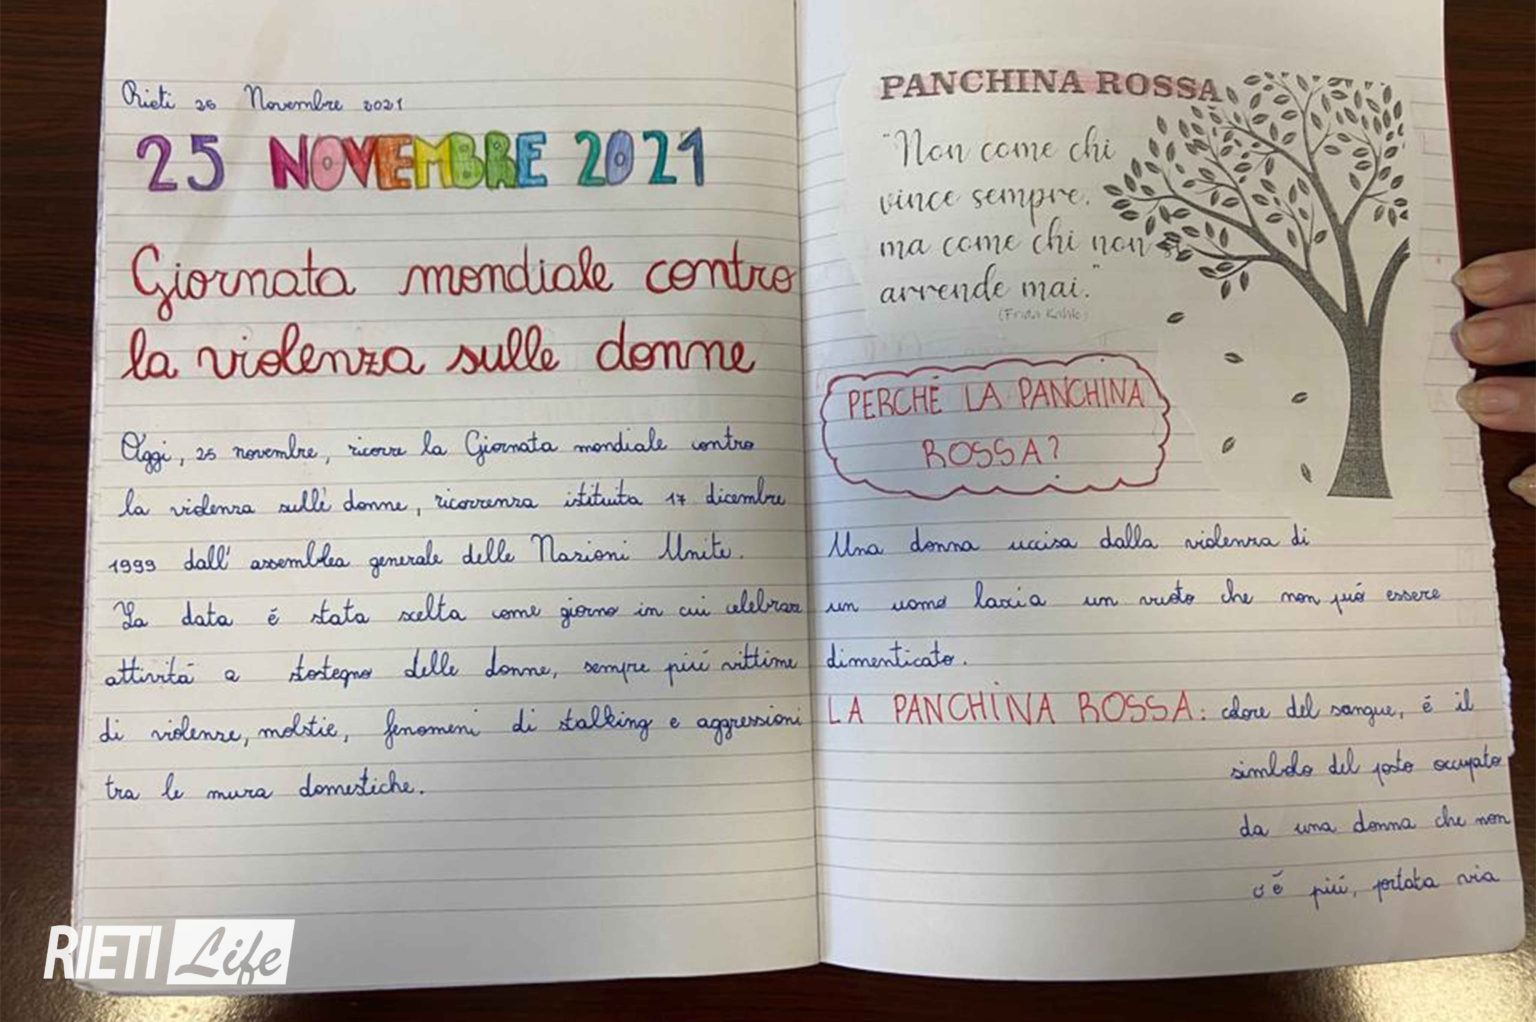 Rieti 26 Novembre 2021
25 NOVEMBRE 2021
Giornata mondiale contro
la violenza sulle donne
Oggi, 25 novembre, ricorre la Giornata mondiale contro
la violenza sulle donne, ricorrenza istituita 17 dicembre
1999 dall' assemblea generale delle Nazioni Unite.
La data é stata scelta come giorno in cui celebrare
attivitá a sostegno delle donne, sempre piú vittime
di violenze, molstie, fenomeni di stalking e aggressioni
tra le mura domestiche.
PANCHINA ROSSA
"Non come chi
vince sempre,
ma come chi non s
arrende mai."
(Frida Kahlo)
PERCHÉ LA PANCHINA
ROSSA?
Una donna uccisa dalla violenza di
un uomo lascia un vuoto che non puó essere
dimenticato.
LA PANCHINA ROSSA: colore del sangue, é il
simbolo del posto occupato
da una donna che non
c'é piú, portata via
RIETI Life